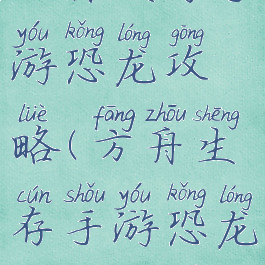 yóu kǒng lóng gōng
游恐龙攻
lüè fāng zhōu shēng
略(方舟生
cún shǒu yóu kǒng lóng
存手游恐龙